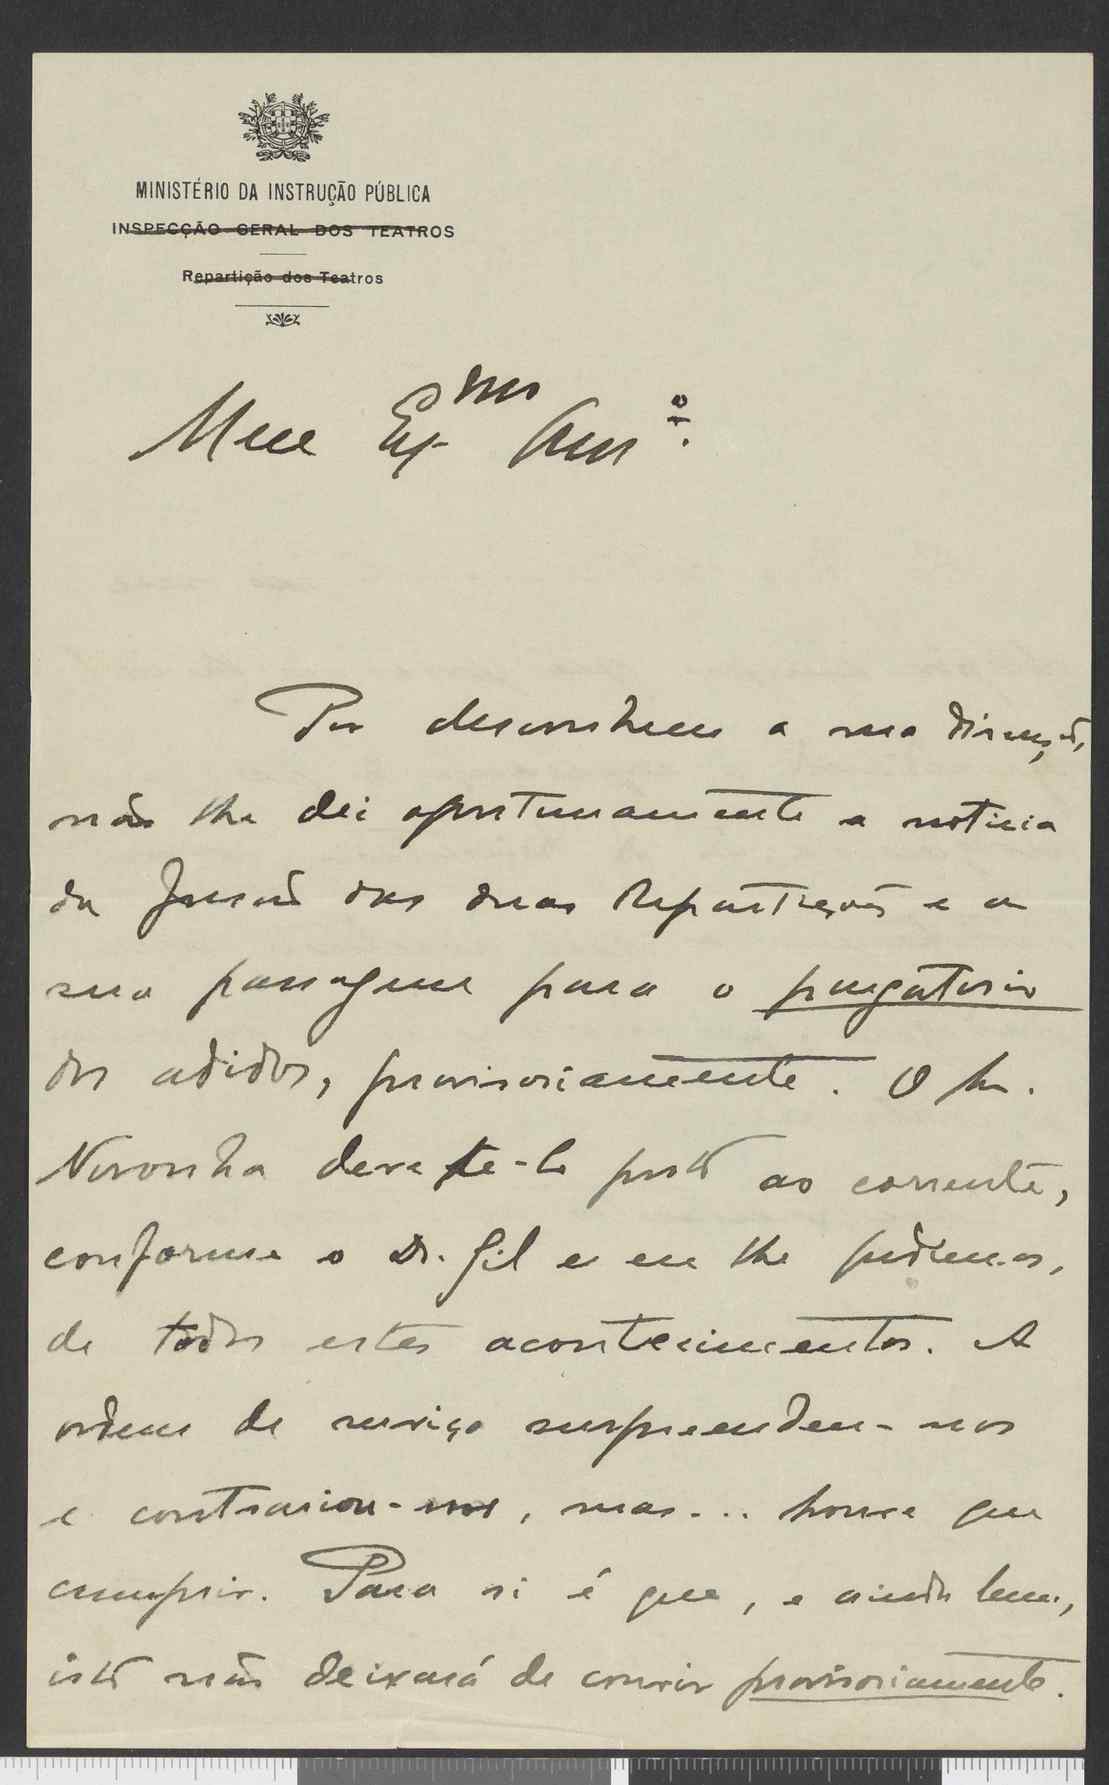 MINISTÉRIO DA INSTRUÇÃO PÚBLICA
INSPECÇÃO GERAL DOS TEATROS
Repartição dos Teatros
Meu Exmo Amº.
Por desconhecer a sua direcção,
não lhe dei oportunamente a noticia
da fusão das duas Repartições e a
sua passagem para o purgatorio
dos adidos, provisoriamente. O Sr.
Noronha deve te-lo posto ao corrente,
conforme o Dr. Gil e eu lhe pedimos,
de todos estes acontecimentos. A
ordem de serviço surpreendeu-nos
e contrariou-nos, mas... houve que
cumprir. Para si é que, e ainda bem,
isto não deixará de convir provisoriamente.